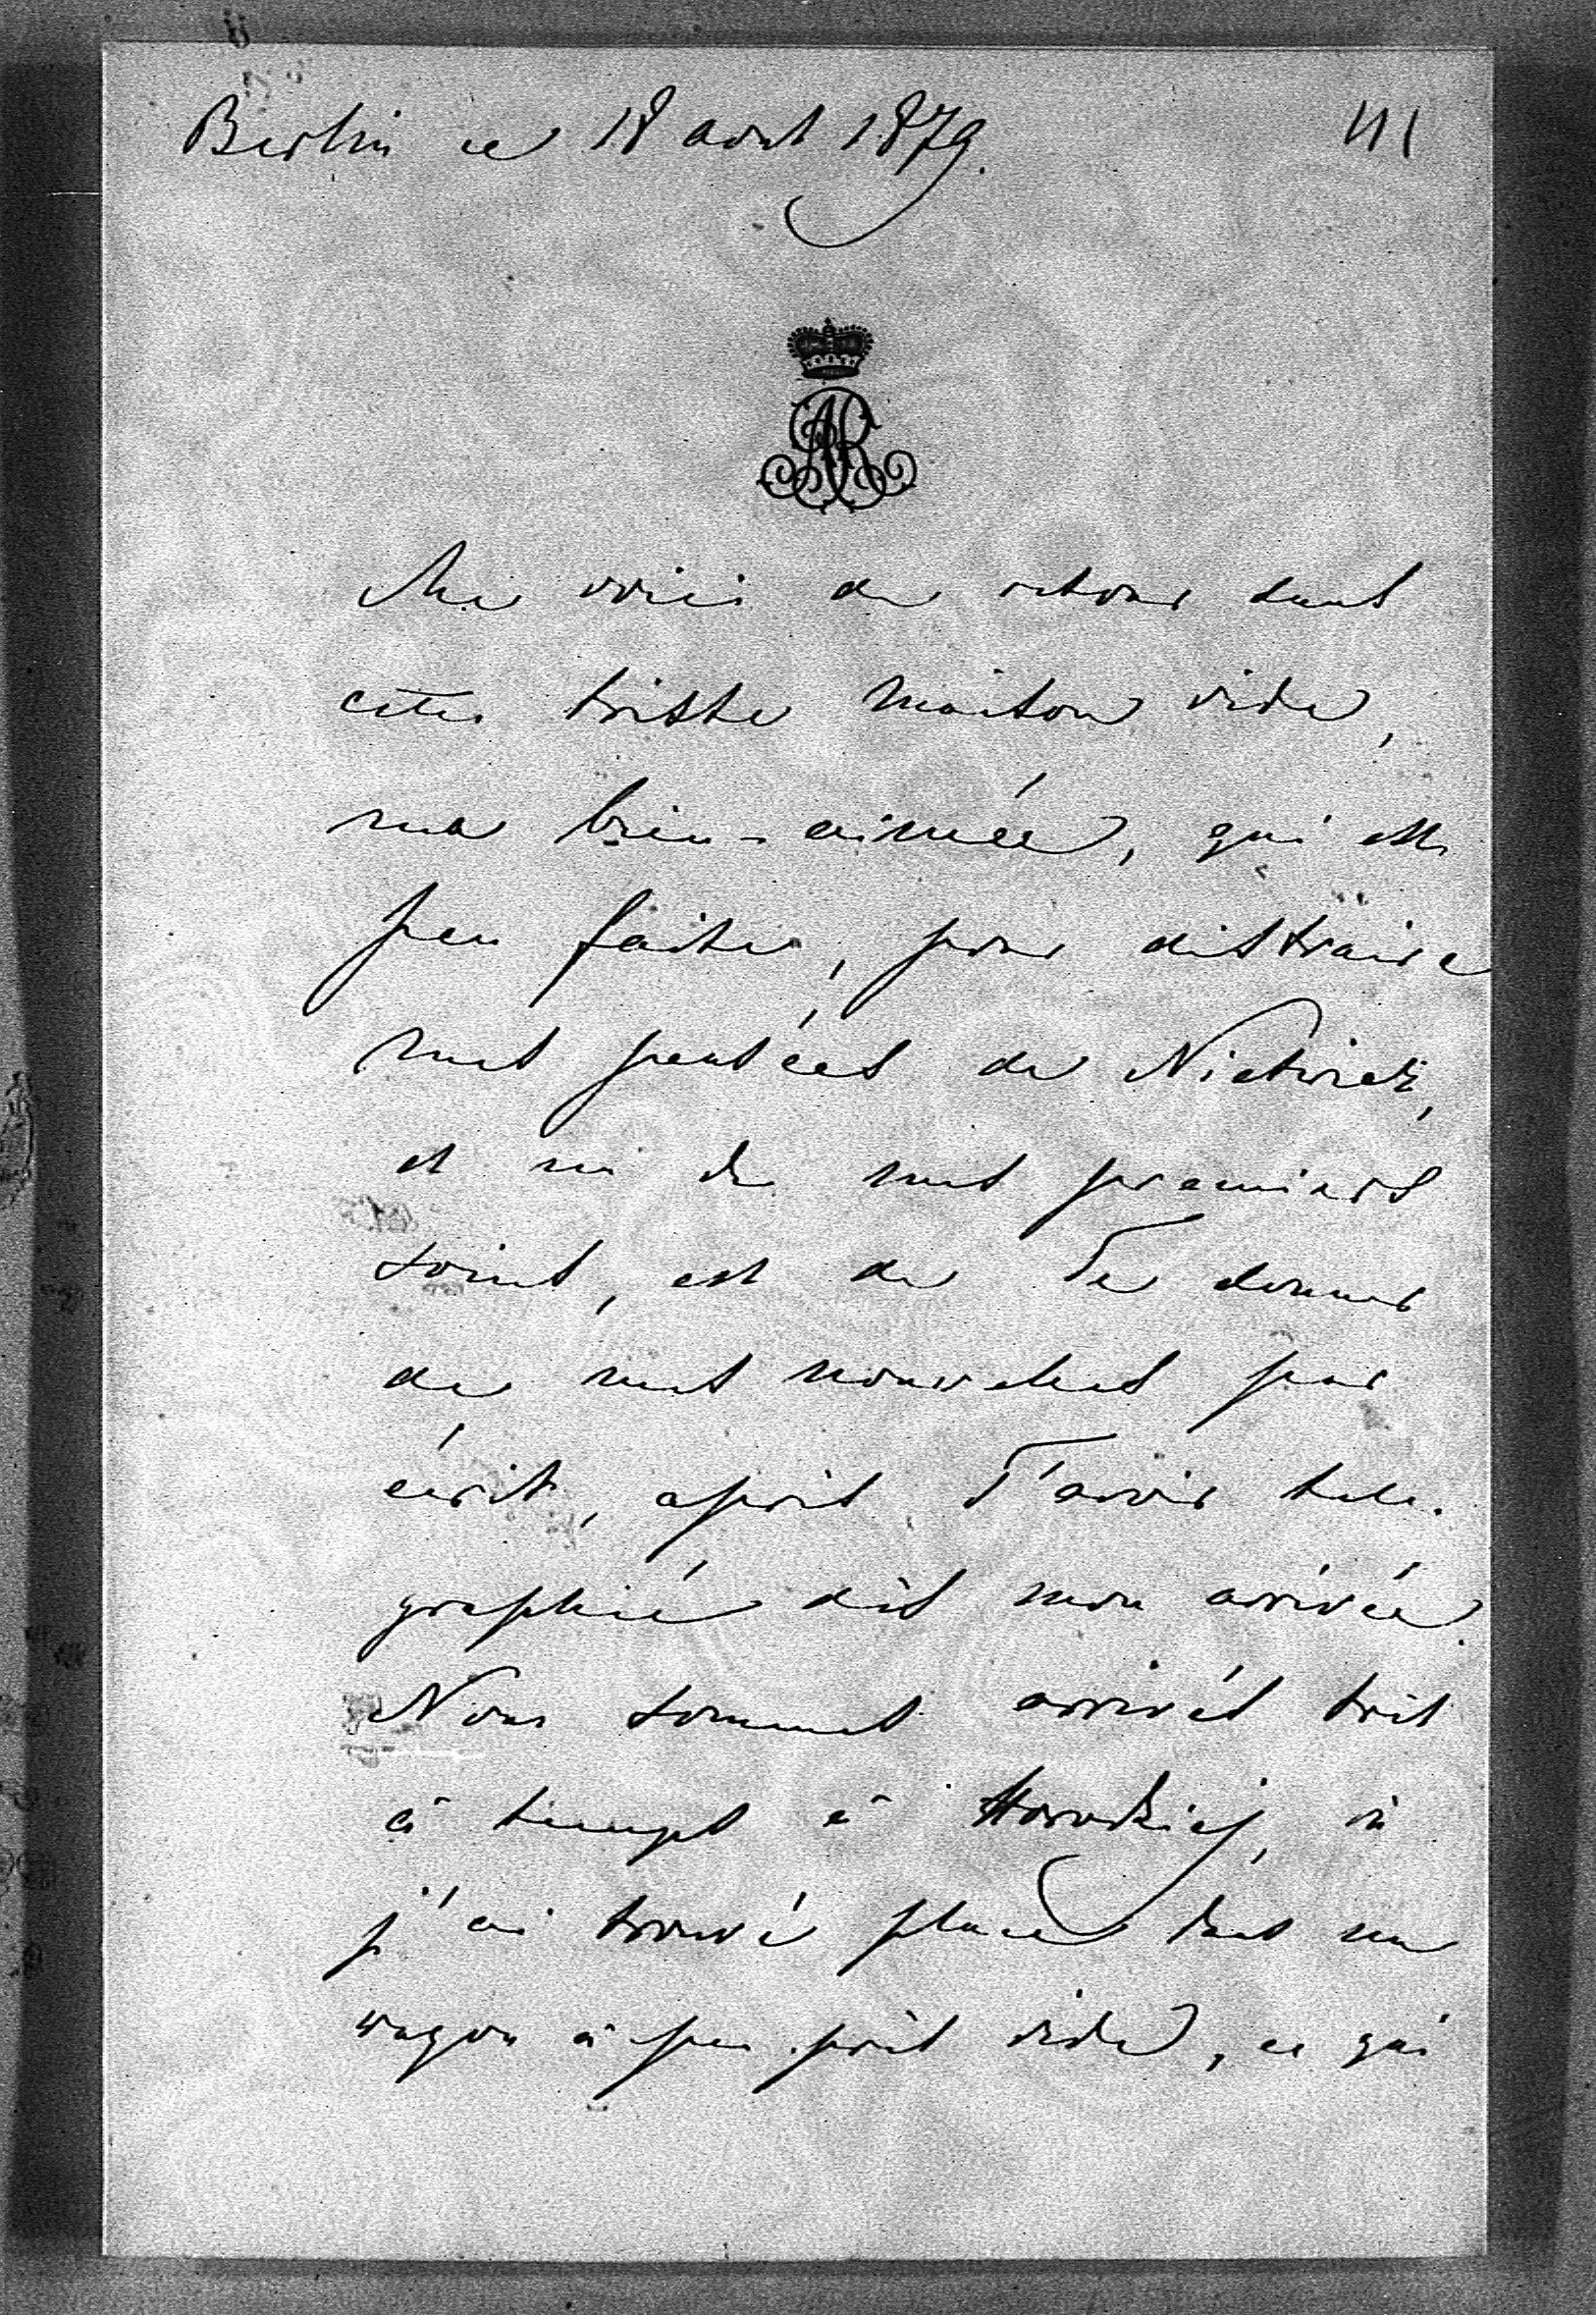 Berlin ce 18 aout 1879.
111
AR
Me voici de retour dans
cette triste maison vide,
ma bien-aimée, qui est
peu faite, pour distraire
mes pensées de Nieświeź,
et un de mes premiers
soins, est de Te donner
de mes nouvelles par
écrit, après T'avoir tele-
graphié dès mon arrivée.
Nous sommes arrivés très
à temps à Horodziej, où
j'ai trouvé place dans un
wagon à peu près vide, ce qui